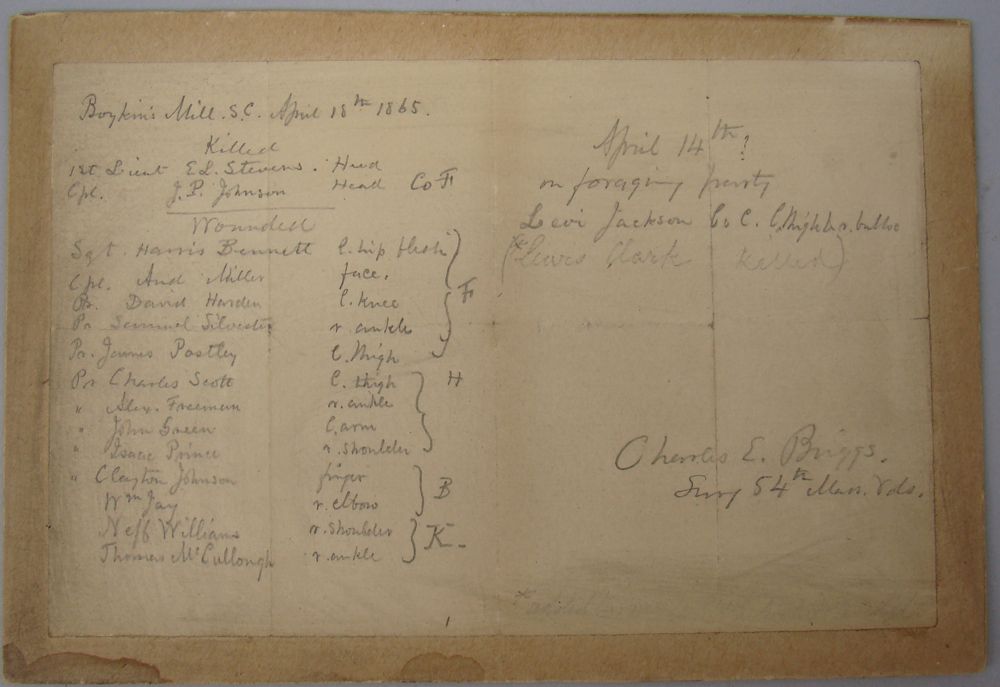 Boykin's Mill. S.C. April 18th 1865.
Killed
1st Lieut E.L. Stevens. Head
Cpl. J.P. Johnson Head Co F
Wounded
Sgt. Harris Bennett l. hip flesh
Cpl. And Miller face.
Pr. David Harden l. knee
F
Pr Samuel Silvester r. ankle
Pr. James Postley l. thigh
Pr Charles Scott l. thigh H
" Alex. Freeman r. ankle
" John Green l. arm
" Isaac Prince r. shoulder
" Clayton Johnson finger
B
Wm Jay r. elbow
Neff Williams r. shoulder
K-
Thomas McCullough r. ankle
April 14th?
on foraging party
Levi Jackson Co C. l. thigh
(*Lewis Clark killed)
Charles E. Briggs.
Surg 54th Mass. Vols.